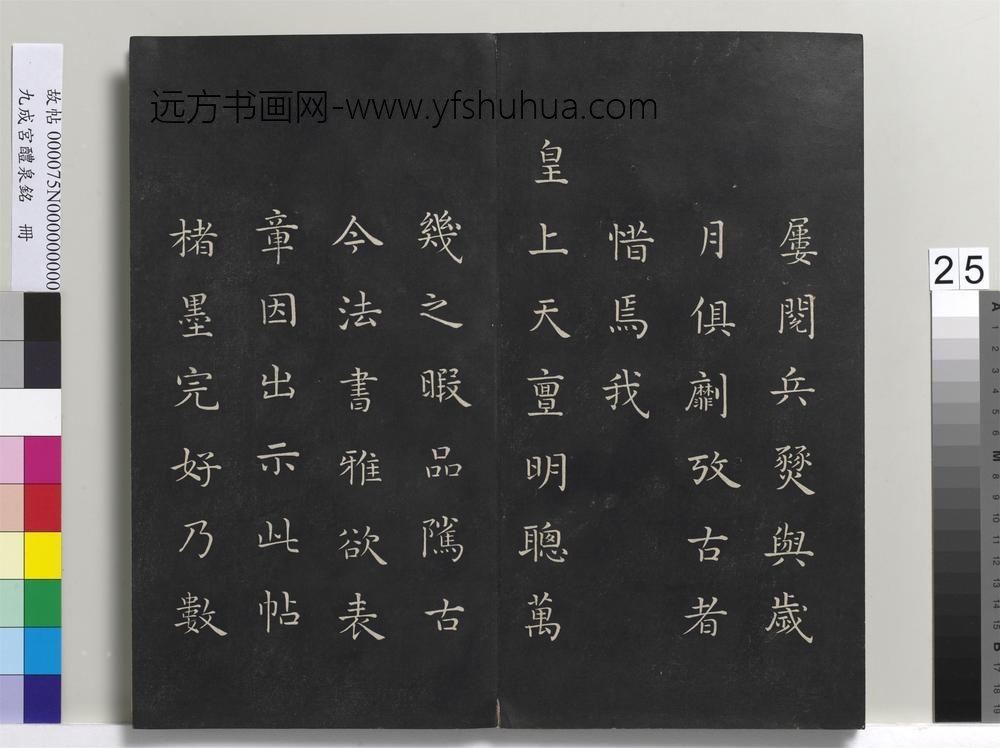 远方书画网-www.yfshuhua.com
屢閱兵燹與歲
月俱劘攷古者
惜焉我
皇
上天亶明聰萬
幾之暇品隲古
今法書雅欲表
章因出示此帖
楮墨完好乃數
故帖 000075N000000000
九成宮醴泉銘 冊
25